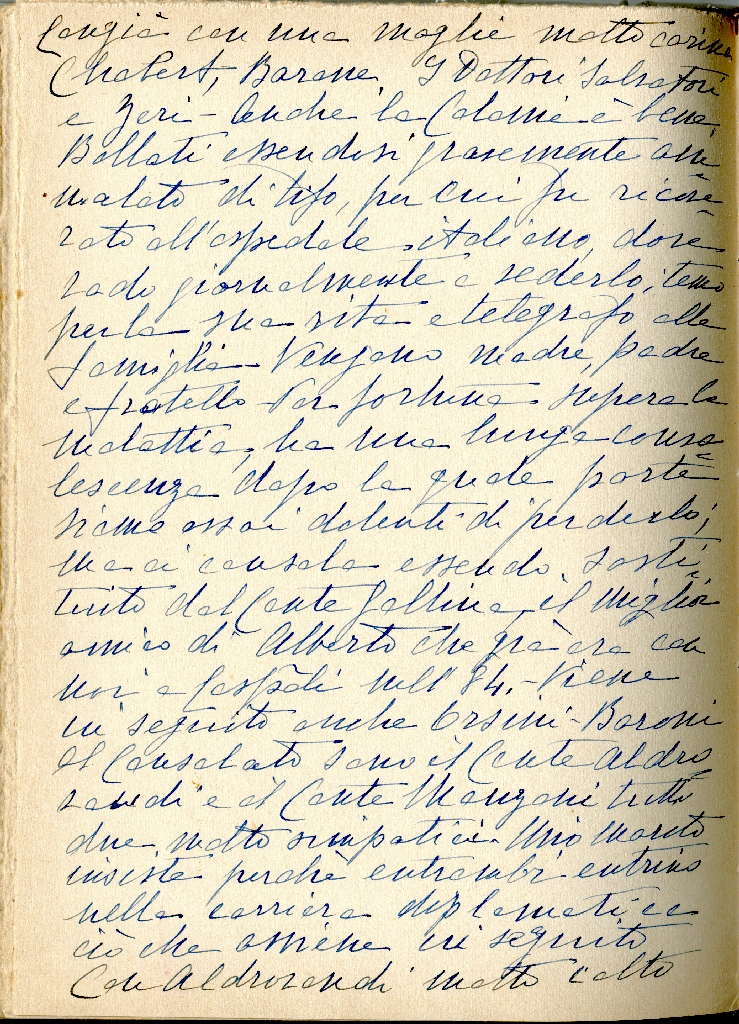 Cangià con una moglie molto carina
Chabert, Barone. I Dottori Salvatori
e Zeri - Anche la Colonia è bene,
Bollati essendosi gravemente am=
malato di tifo, per cui fu ricove=
rato all'ospedale italiano, dove
vado giornalmente a vederlo; temo
per la sua vita e telegrafo alla
famiglia - Vengono madre, padre
e fratello - Per fortuna supera la
malattia, ha una lunga conva=
lescenza dopo la quale parte
siamo assai dolenti di perderlo;
ma ci consola essendo sosti=
tuito dal Conte Gallina, il miglior
amico di Alberto che già era con
noi a nell' 84. - Viene
in seguito anche Orsini-Baroni
Al Consolato sono il Conte Aldro=
vandi e il Conte Manzoni tutti
due molto simpatici. Mio marito
insiste perchè entrambi entrino
nella carriera diplomatica
ciò che avviene in seguito
Con Aldrovandi molto colto